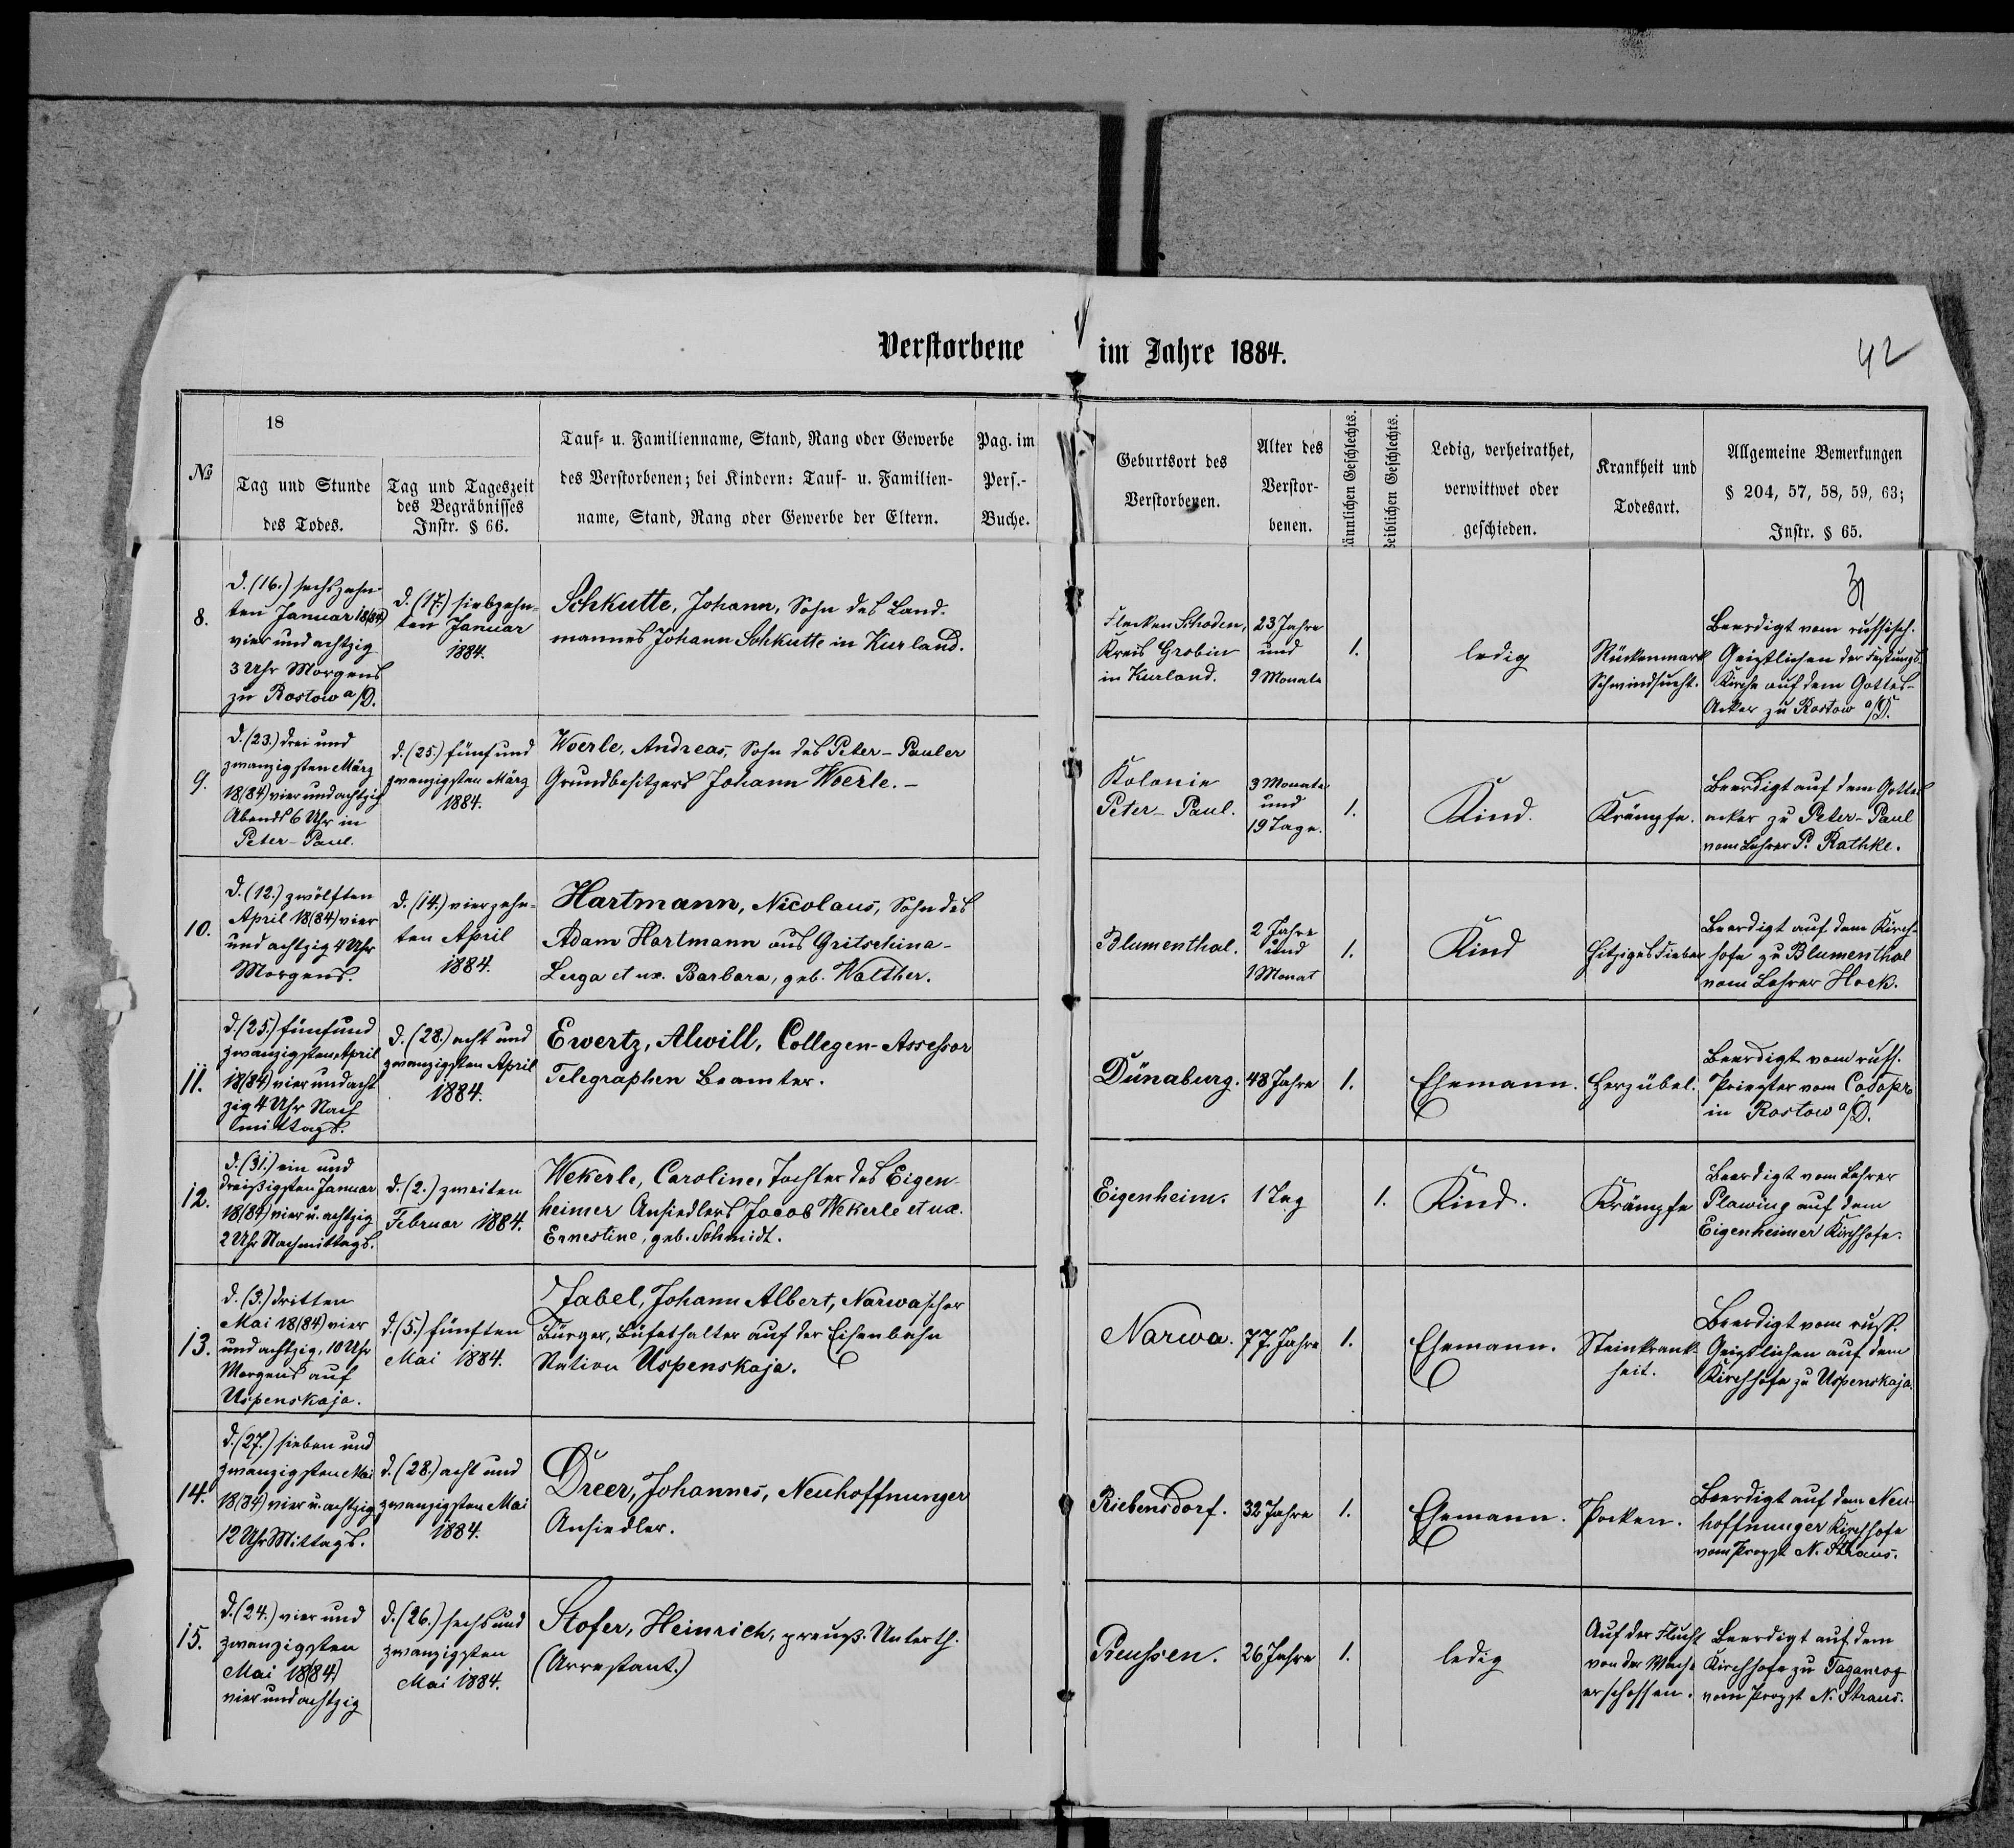 Verstorbene im Jahre 1884.
42
18
№
Tag und Stunde
des Todes.
Tag und Tageszeit
des Begräbnisses
Instr. § 66.
Tauf- u. Familienname, Stand, Rang oder Gewerbe
des Verstorbenen; bei Kindern: Tauf- u. Familien-
name, Stand, Rang oder Gewerbe der Eltern.
Pag. im
Pers.-
Buche.
Geburtsort des
Verstorbenen.
Alter des
Verstor-
benen.
männlichen Geschlechts.
weiblichen Geschlechts.
Ledig, verheirathet,
verwittwet oder
geschieden.
Krankheit und
Todesart.
Allgemeine Bemerkungen
§ 204, 57, 58, 59, 63;
Instr. § 65.
8.
d. (16.) sechszehn-
ten Januar 18(84)
vier und achtzig
3 Uhr Morgens
zu Rostow a/D.
d. (17.) siebzehn-
ten Januar
1884.
Schkutte, Johann, Sohn des Land-
mannes Johann Schkutte in Kurland.
Flecken Schoden,
Kreis Grobin
in Kurland.
23 Jahre
und
9 Monate
1.
ledig
Rückenmark
Schwindsucht.
Beerdigt vom russisch.
Geistlichen der Festungs-
Kirche auf dem Gottes-
Acker zu Rostow a/D.
9.
d. (23.) drei und
zwanzigsten März
18(84) vier und achtzig
Abends 6 Uhr in
Peter-Paul.
d. (25.) fünf und
zwanzigsten März
1884.
Woerle, Andreas, Sohn des Peter-Pauler
Grundbesitzers Johann Woerle. –
Kolonie
Peter-Paul.
3 Monate
und
19 Tage.
1.
Kind.
Krämpfe.
Beerdigt auf dem Gottes
acker zu Peter-Paul
vom Lehrer P. Rathke.
10.
d. (12.) zwölften
April 18(84) vier
und achtzig 4 Uhr
Morgens.
d. (14.) vierzehn-
ten April
1884.
Hartmann, Nicolaus, Sohn des
Adam Hartmann aus Gritschina-
Luga et ux. Barbara, geb. Walther.
Blumenthal.
2 Jahre
und
1 Monat
1.
Kind
hitziges Fieber
Beerdigt auf dem Kirch-
hofe zu Blumenthal
vom Lehrer Hock.
11.
d. (25.) fünf und
zwanzigsten April
18(84) vier und acht
zig 4 Uhr Nach
mittags.
d. (28.) acht und
zwanzigsten April
1884.
Ewertz, Alwill, Collegen-Assessor
Telegraphen Beamter.
Dünaburg.
48 Jahre
1.
Ehemann.
Herzübel.
Beerdigt vom russ.
Priester vom
in Rostow a/D.
12.
d. (31.) ein und
dreißigsten Januar
18(84) vier u. achtzig
2 Uhr Nachmittags.
d. (2.) zweiten
Februar 1884.
Wekerle, Caroline, Tochter des Eigen-
heimer Ansiedlers Jacob Wekerle et ux.
Ernestine, geb. Schmidt.
Eigenheim.
1 Tag
1.
Kind.
Krämpfe
Beerdigt vom Lehrer
Plawing auf dem
Eigenheimer Kirchhofe.
13.
d. (3.) dritten
Mai 18(84) vier
und achtzig, 10 Uhr
Morgens auf
Uspenskaja.
d. (5.) fünften
Mai 1884.
Jabel, Johann Albert, Narwascher
Bürger, Büfethalter auf der Eisenbahn
Station Uspenskaja.
Narwa.
77. Jahre
1.
Ehemann.
Steinkrank-
heit.
Beerdigt vom russ.
Geistlichen auf dem
Kirchhofe zu Uspenskaja.
14.
d. (27.) sieben und
zwanzigsten Mai
18(84) vier u. achtzig
12 Uhr Mittags.
d. (28.) acht und
zwanzigsten Mai
1884.
Dreer, Johannes, Neuhoffnunger
Ansiedler.
Riebensdorf.
32 Jahre
1.
Ehemann.
Pocken.
Beerdigt auf dem Neu-
hoffnunger Kirchhofe
vom Propst N. Straus.
15.
d. (24.) vier und
zwanzigsten
Mai 18(84)
vier und achtzig
d. (26.) sechs und
zwanzigsten
Mai 1884.
Stofer, Heinrich, preuß. Unterth.
(Arrestant.)
Preussen.
26 Jahre
1.
ledig
Auf der Flucht
von der Wache
erschossen.
Beerdigt auf dem
Kirchhofe zu Taganrog
vom Propst N. Straus.